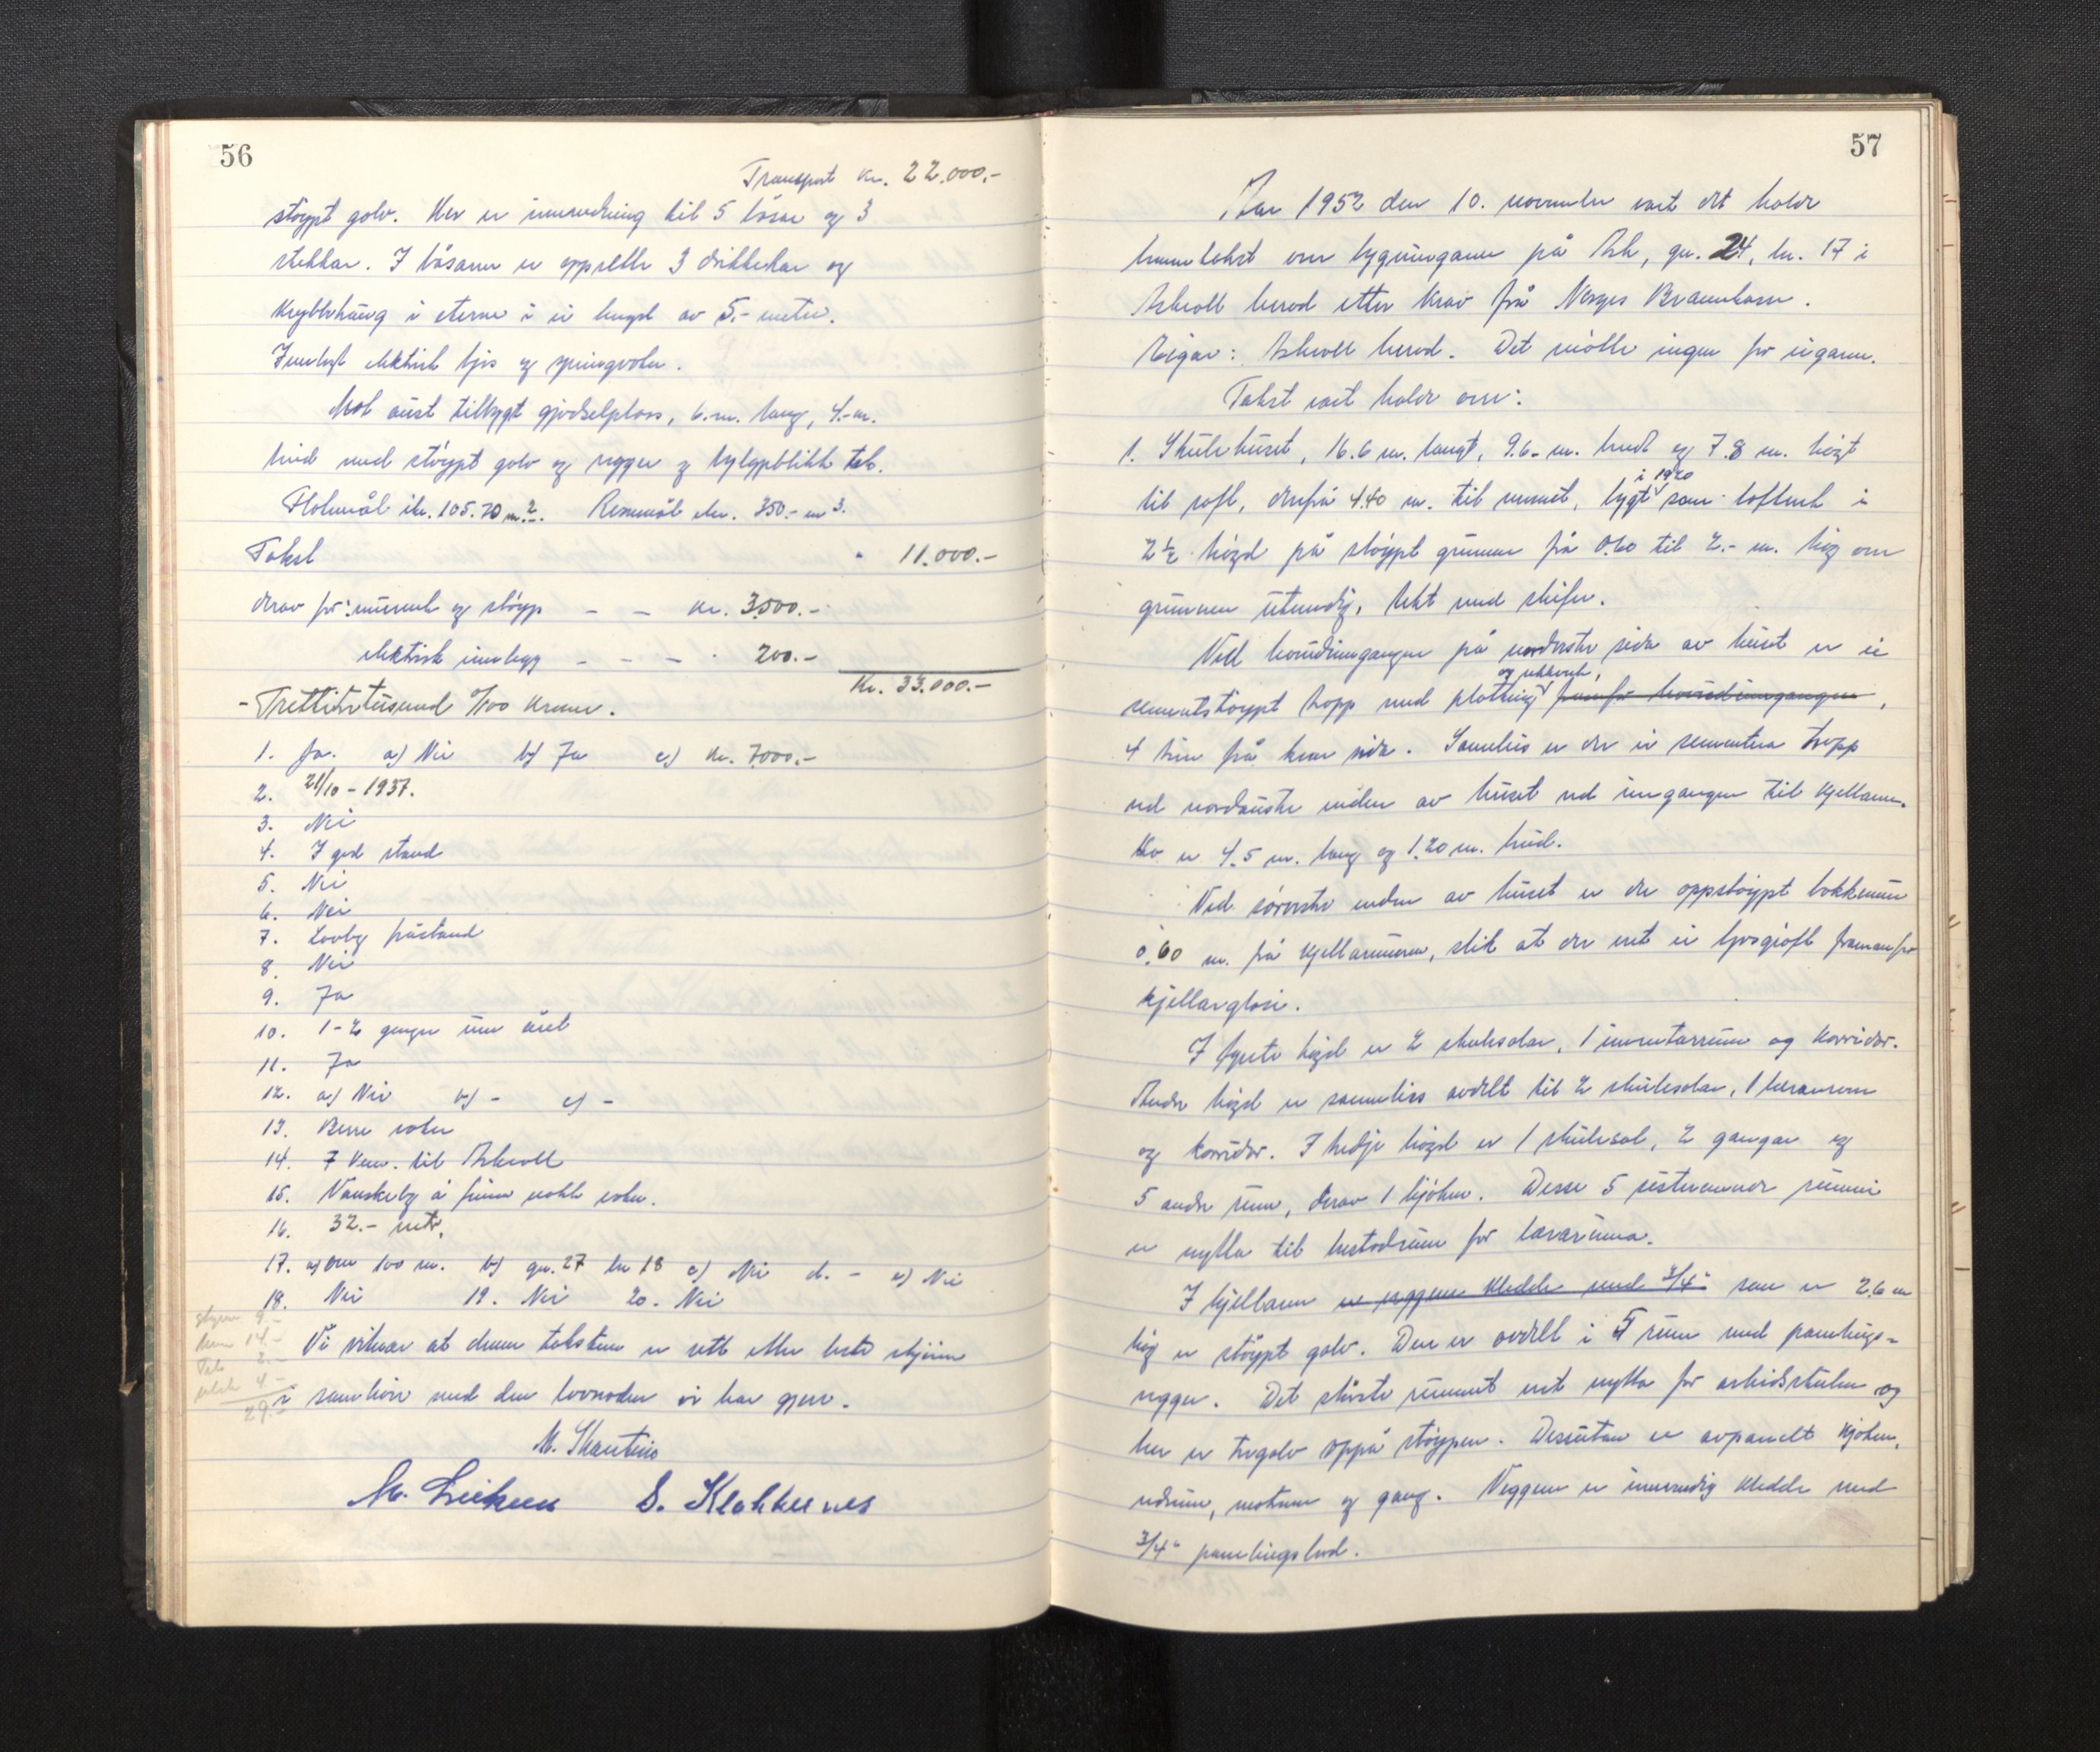 56
Transport kr. 22.000.-
støypt golv. Her er innreidning til 5 båsar og 3
stekkar. I båsane er oppsette 3 drikkekar og
krybbhäng i eterne i ei lengd av 5.- meter.
Innlagt elektrisk ljos og springvatn.
Mot aust tilbygt gjødselplass, 6.m. lang, 4.-m.
breid med støypt golv og vegger og bylgjeblikk tak.
Flatemål ikr. 105.70 m2. Rommål ikr. 350.- m3.
Takst " 11.000.-
derav for: murverk og støyp - - kr. 3500.-
elektrisk innlegg - - - " 200.-
Kr. 33.000.-
- Trettitretusund 0/100 kroner.
1. Ja. a) Nei b) Ja c) kr. 7000.-
2. 21/10 - 1937.
3. Nei
4. I god stand
5. Nei
6. Nei
7. Lovleg tilstand
8. Nei
9. Ja
10. 1-2 gonger um året
11. Ja
12. a) Nei b) - c) -
13. Berre vatn
14. 7 km. til Askvoll
15. Vanskeleg å finne nokk vatn.
16. 32.- metr.
17. a) Om 100 m. b) gn. 27 bn 18 c) Nei d. - e) Nei
18. Nei 19. Nei 20. Nei
Vi vitnar at denne taksten er sett etter beste skjøn
i samhøve med den lovnaden vi har gjeve.
14.-
2.-
4.-
29.-
M. Leiknes S. Klokkernes
57
Aar 1952 den 10. november vart det halde
branntakst over bygningane på Ask, gn. 24, bn. 17 i
Askvoll herad etter krav frå Norges Brannkasse.
Eigar: Askvoll herad. Det møtte ingen for eigaren.
Takst vart halde over:
1. Skulehuset, 16.6 m. langt, 9.6- m. breidt og 7.8 m. høgt
i 1920
til raft, derifrå 4.40 m. til mønet, bygt som lafteverk i
2 1/2 høgd på støypt grunnmur frå 0.60 til 2.- m. høg over
grunnen utvendig, tekt med skifer.
Ved hovudinngangen på nordvestre sida av huset er ei
og rekkverk,
sementstøypt trapp med platting framfor hovudinngangen,
4 trin frå kvar side. Sameleis er der ei sementera trapp
ved nordaustre enden av huset ved inngangen til kjellaren.
Ho er 4.5 m. lang og 1.20 m. breid.
Ved sørvestre enden av huset er der oppstøypt bakkemur
0.60 m. frå kjellarmuren, slik at der vert ei ljosgrøft framanfor
kjellarglasi.
I fyrste høgd er 2 skulesalar, 1 inventarrum og korridor.
Andre høgd er sameleis avdelt til 2 skulesalar, 1 lærarrom
og korridor. I tredje høgd er 1 skulesal, 2 gangar og
5 andre rum, derav 1 kjøken. Desse 5 sistnemnde rummi
er nytta til bustadrum for lærarinna.
I kjellaren er veggene kledde med 3/4" som er 2.6 m
høg er støypt golv. Den er avdelt i 5 rum med panelings-
vegger. Det største rummet vert nytta for arbeidsskulen og
her er tregolv oppå støypen. Dessutan er avpanelt kjøken,
vedrum, matrum og gang. Veggene er innvendig kledde med
3/4" panelingsbord.